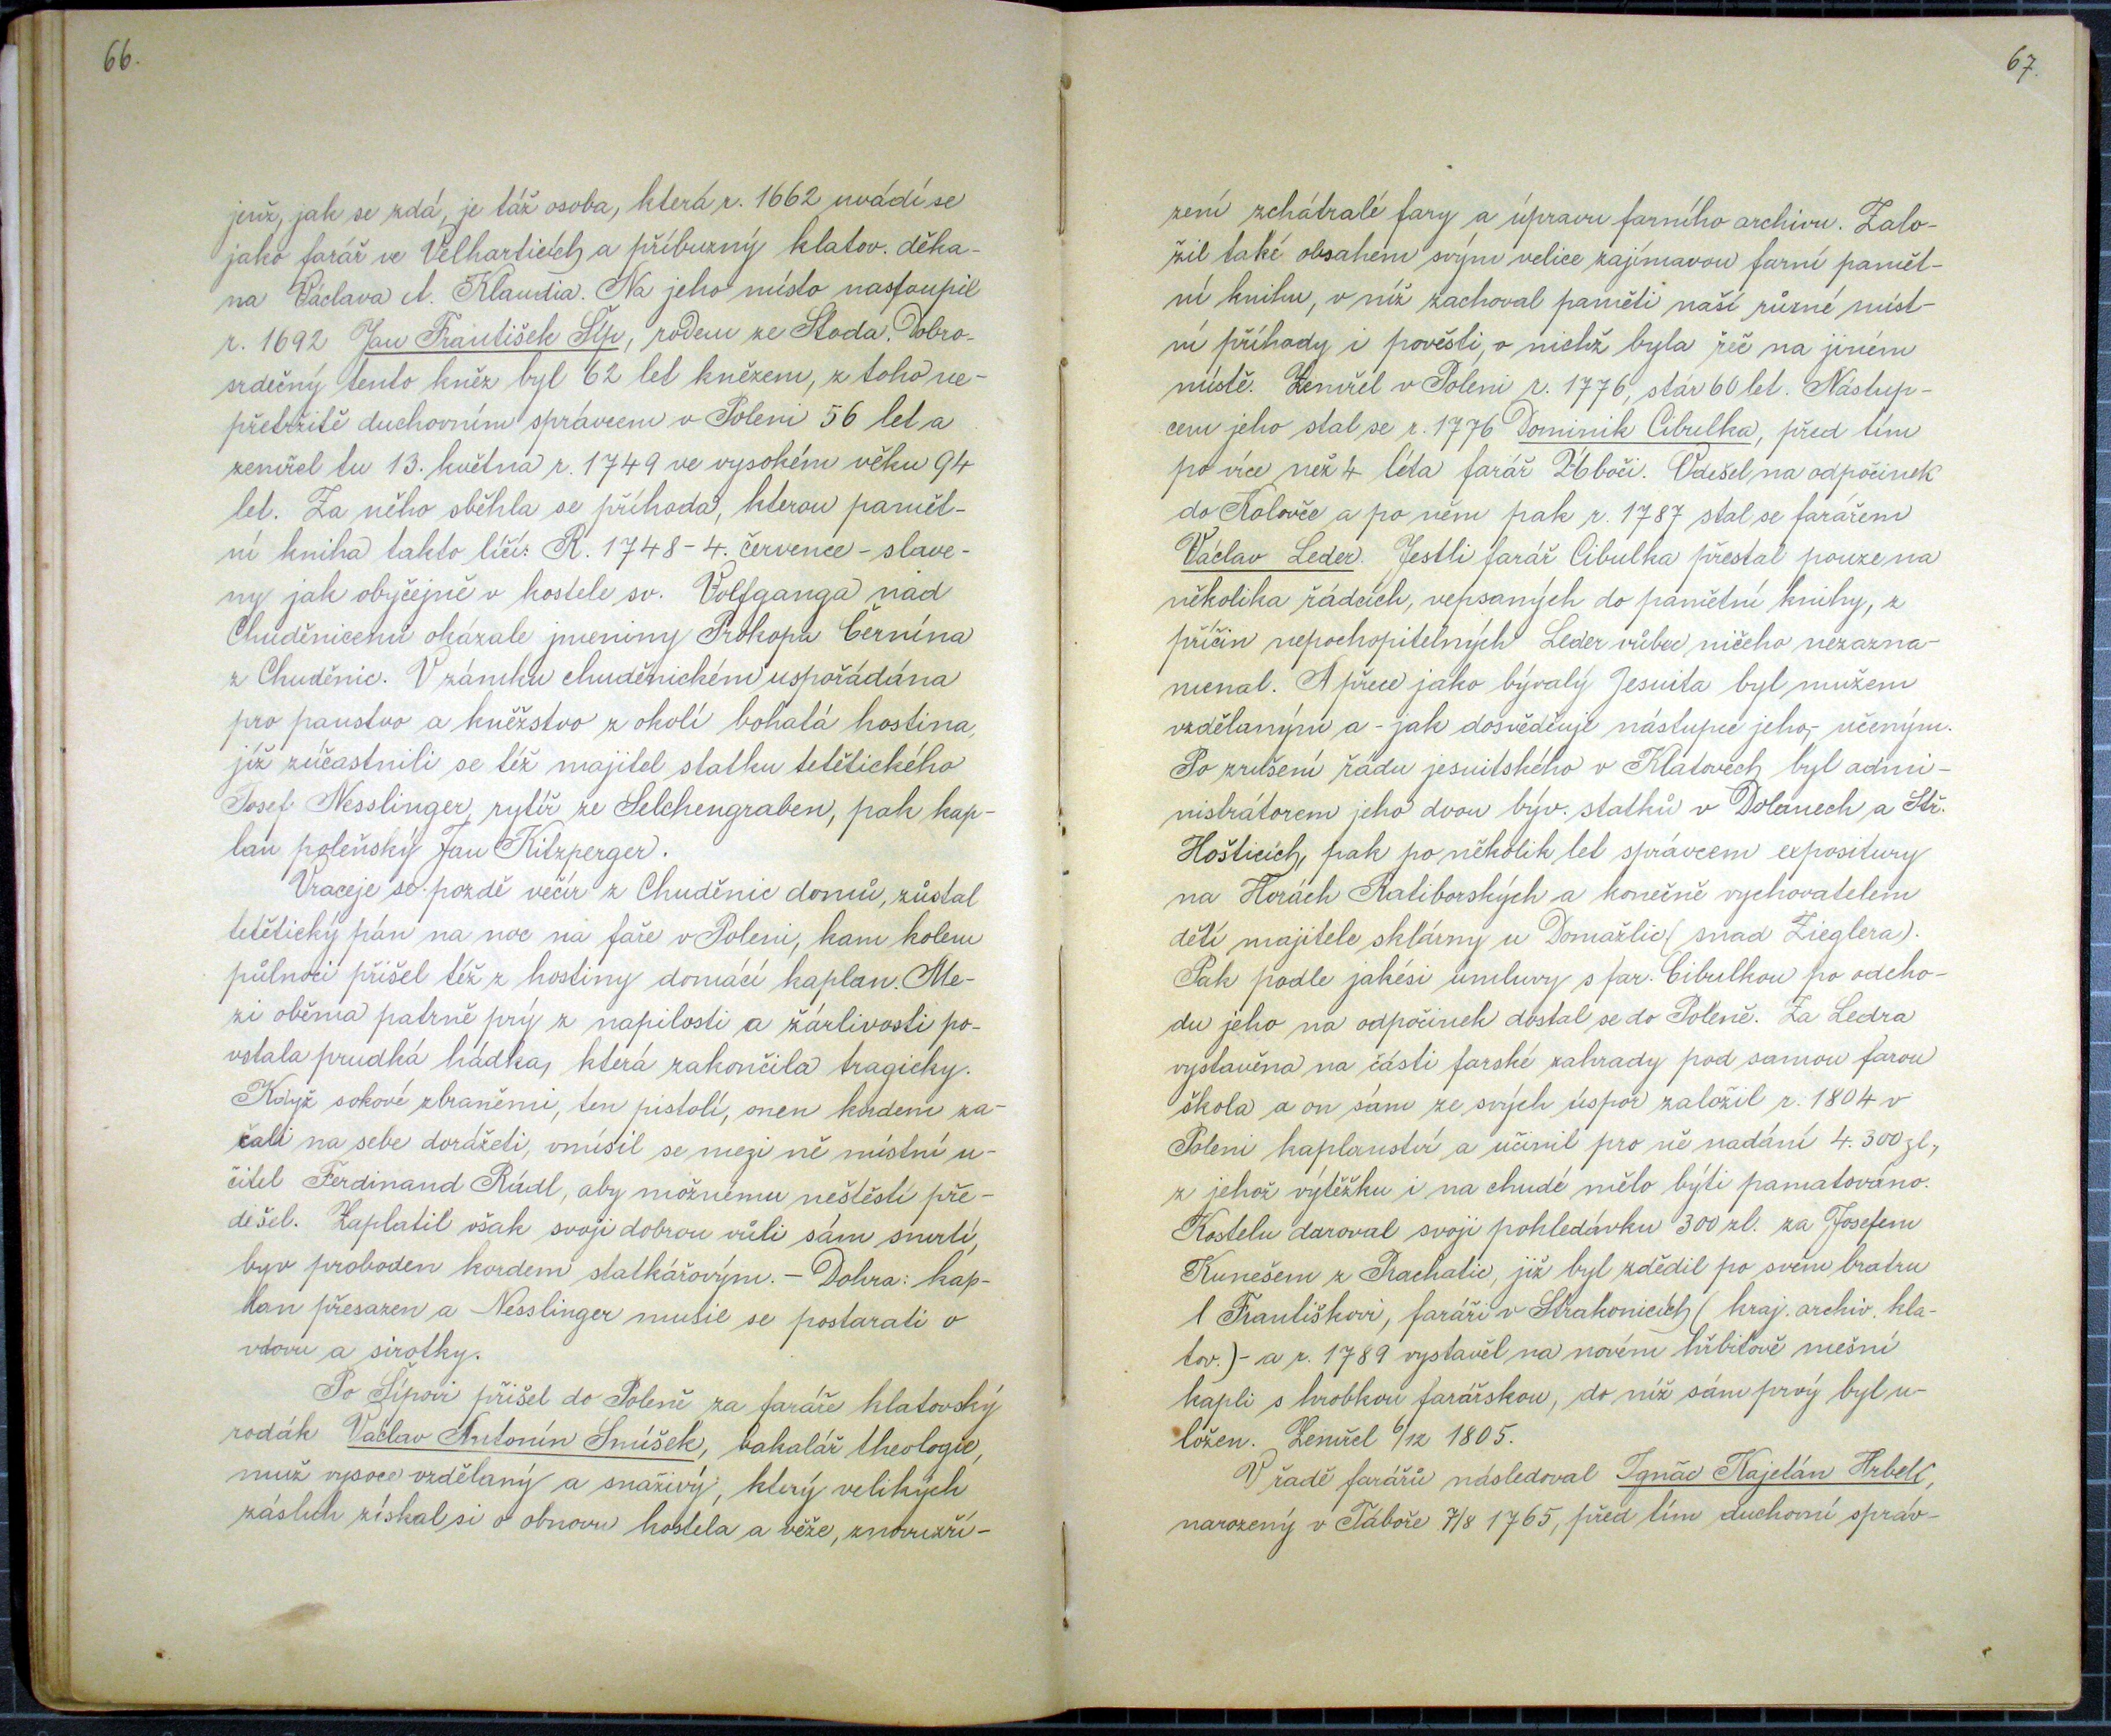 66.
jenž, jak se zdá, je táž osoba, která r. 1662 uvádí se
jako farář ve Velharticích a příbuzný klatov. děka-
na Václava A. Klaudia. Na jeho místo nastoupil
r. 1692 Jan František Šíp, rodem ze Stoda. Dobro-
srdečný tento kněz byl 62 let knězem, z toho ne-
přetržitě duchovním správcem v Poleni 56 let a
zemřel tu 13. května r. 1749 ve vysokém věku 94
let. Za něho sběhla se příhoda, kterou pamět-
ní kniha takto líčí: R. 1748 - 4. července - slave-
ny jak obyčejně v kostele sv. Volfganga nad
Chuděnicemi okázale jmeniny Prokopa Černína
z Chuděnic. V zámku chuděnickém uspořádána
pro panstvo a kněžstvo z okolí bohatá hostina,
jíž zúčastnili se též majitel statku tetětického
Josef Nesslinger, rytíř ze Selchengraben, pak kap-
lan poleňský Jan Kitzperger.
Vraceje se pozdě večír z Chuděnic domů, zůstal
tetětický pán na noc na faře v Poleni, kam kolem
půlnoci přišel též z hostiny domácí kaplan. Me-
zi oběma patrně prý z napilosti a žárlivosti po-
vstala prudká hádka, která zakončila tragicky.
Když sokové zbraněmi, ten pistolí, onen kordem za-
čali na sebe dorážeti, vmísil se mezi ně místní u-
čitel Ferdinand Rúdl, aby možnému neštěstí pře-
dešel. Zaplatil však svoji dobrou vůli sám smrtí,
byv proboden kordem statkářovým. - Dohra: kap-
lan přesazen a Nesslinger musil se postarati o
vdovu a sirotky.
Po Šípovi přišel do Poleně za faráře klatovský
rodák Václav Antonín Smíšek, bakalář theologie,
muž vysoce vzdělaný a snaživý, který velikých
zásluh získal si o obnovu kostela a věže, znovuzří-
67.
zení zchátralé fary a úpravu farního archivu. Zalo-
žil také obsahem svým velice zajímavou farní pamět-
ní knihu, v níž zachoval paměti naší různé míst-
ní příhody i pověsti, o nichž byla řeč na jiném
místě. Zemřel v Poleni r. 1776, stár 60 let. Nástup-
cem jeho stal se r. 1776 Dominik Cibulka, před tím
po více než 4 léta farář v Úbočí. Odešel na odpočinek
do Koloveče a po něm pak r. 1787 stal se farářem
Václav Leder. Jestli farář Cibulka přestal pouze na
několika řádcích, vepsaných do pamětní knihy, z
příčin nepochopitelných Leder vůbec ničeho nezazna-
menal. A přece jako bývalý Jesuita byl mužem
vzdělaným a - jak dosvědčuje nástupce jeho,- učeným.
Po zrušení řádu jesuitského v Klatovech byl admi-
nistrátorem jeho dvou býv. statků v Dolanech a Stř.
Hošticích, pak po několik let správcem expositury
na Horách Ratiborských a konečně vychovatelem
dětí majitele sklárny u Domažlic (snad Zieglera).
Pak podle jakési úmluvy s far. Cibulkou po odcho-
du jeho na odpočinek dostal se do Poleně. Za Ledra
vystavěna na části farské zahrady pod samou farou
škola a on sám ze svých úspor založil r. 1804 v
Poleni kaplanství a učinil pro ně nadání 4.300 zl.,
z jehož výtěžku i na chudé mělo býti pamatováno.
Kostelu daroval svoji pohledávku 300 zl. za Josefem
Kunešem z Prachatic, již byl zdědil po svém bratru
† Františkovi, faráři v Strakonicích (kraj. archiv. kla-
tov.) - a r. 1789 vystavěl na novém hřbitově mešní
kapli s hrobkou farářskou, do níž sám prvý byl u-
ložen. Zemřel 6/12 1805.
V řadě farářů následoval Ignác Kajetán Hrbek,
narozený v Táboře 7/8 1765, před tím duchovní správ-